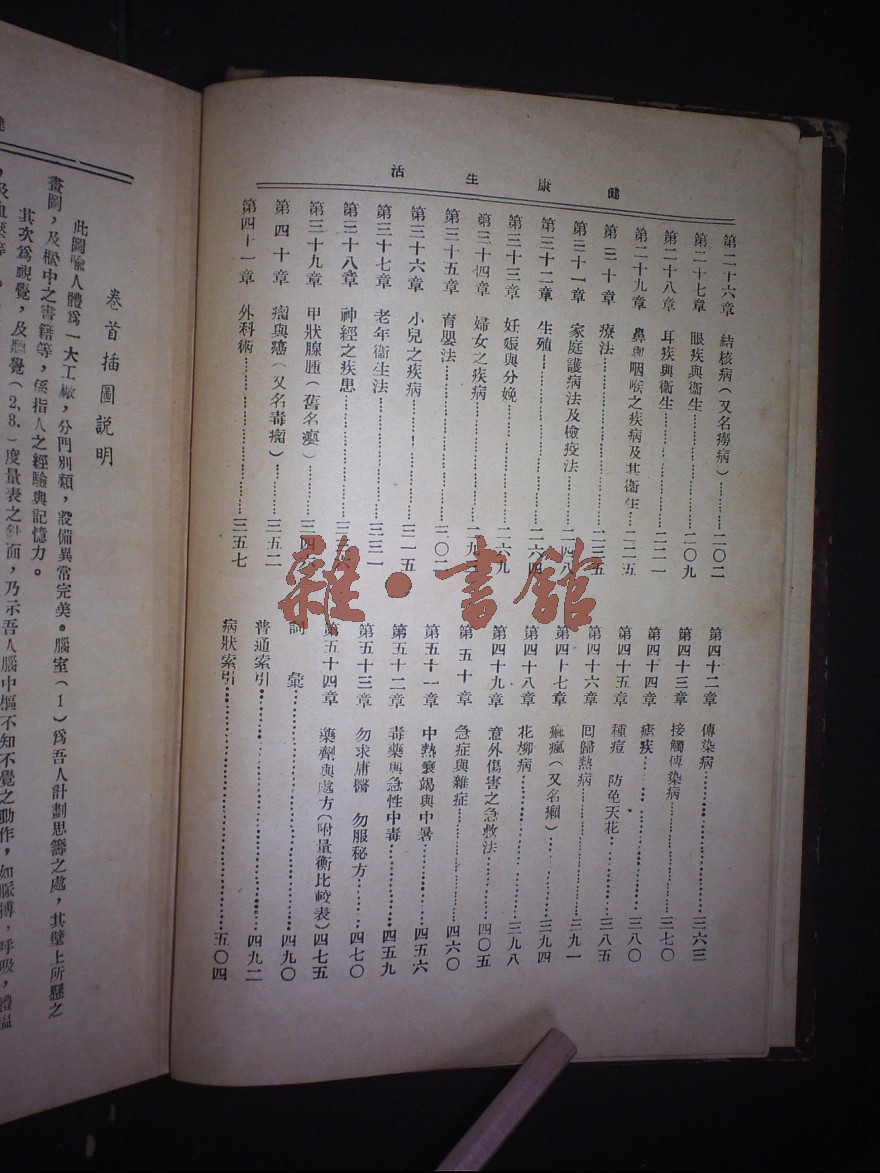 健康生活
第二十六章 結核病(又名癆病)…………二〇二
第二十七章 眼疾與衞生…………二〇九
第二十八章 耳疾與衞生…………二二一
第二十九章 鼻與咽喉之疾病及其衞生……二二五
第三十章 療法…………二三五
第三十一章 家庭護病法及檢疫法…………二四八
第三十二章 生殖…………二六四
第三十三章 妊娠與分娩…………二六九
第三十四章 婦女之疾病…………二九
第三十五章 育嬰法…………三〇二
第三十六章 小兒之疾病…………三一五
第三十七章 老年衞生法…………三三一
第三十八章 神經之疾患…………三三六
第三十九章 甲狀腺腫(舊名癭)…………三四六
第四十章 瘤與癌(又名毒瘤)…………三五二
第四十一章 外科術…………三五七
第四十二章 傳染病…………三六三
第四十三章 接觸傳染病…………三七〇
第四十四章 瘧疾…………三八〇
第四十五章 種痘 防免天花…………三八五
第四十六章 囘歸熱病…………三九一
第四十七章 痲瘋(又名癩)…………三九四
第四十八章 花柳病…………三九八
第四十九章 意外傷害之急救法…………四〇五
第五十章 急症與雜症…………四六〇
第五十一章 中熱衰竭與中暑…………四五六
第五十二章 毒藥與急性中毒…………四五九
第五十三章 勿求庸醫 勿服秘方…………四七〇
第五十四章 藥劑與處方(附量衡比較表)四七五
詞彙…………四九〇
普通索引…………四九二
病狀索引…………五〇四
卷首插圖説明
此圖喻人體爲一大工廠,分門別類,設備異常完美。腦室(1)爲吾人計劃思籌之處,其壁上所懸之
畫圖,及櫥中之書籍等,係指人之經驗與記憶力。
其次爲視覺,及聽覺(2,3.)度量表之針面,乃示吾人腦中樞不知不覺之動作,如脈搏,呼吸,體温
雜·書館